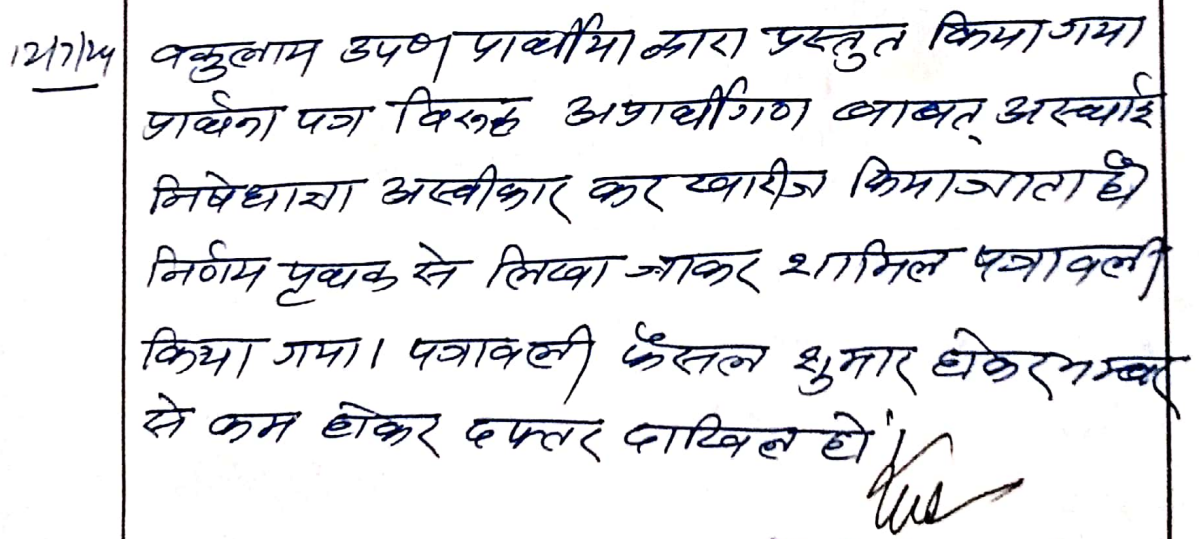 12/7/24 वकुलाय उपण प्रार्थीया द्वारा प्रस्तुत किया गया
प्रार्थना पत्र विरूद्ध अप्रार्थीगण बाबत् अस्थाई
निषेधाज्ञा अस्वीकार कर खारीज किया जाता है
निर्णय पृथक से लिखा जाकर शामिल पत्रावली
किया गया। पत्रावली फैसल शुमार होकर नम्बर
से कम होकर दफ्तर दाखिल हो।